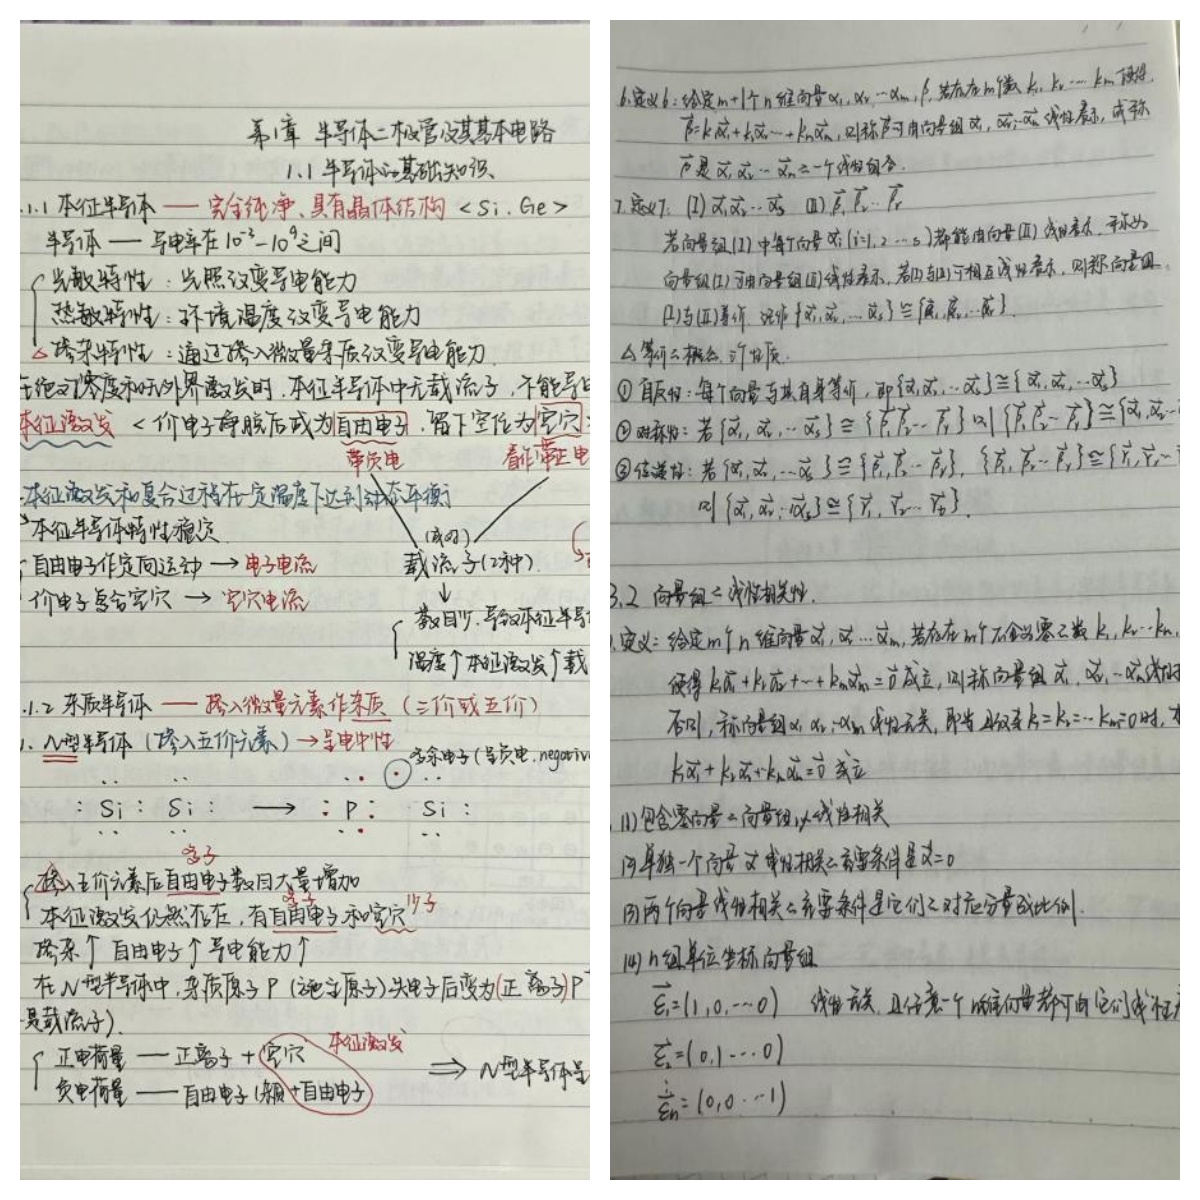 第1章 半导体二极管及其基本电路
1.1 半导体的基础知识
.1.1 本征半导体 —— 完全纯净、具有晶体结构 <Si、Ge>
半导体 —— 导电率在10⁻³-10⁹之间
光敏特性：光照改变导电能力
热敏特性：环境温度改变导电能力
△ 掺杂特性：通过掺入微量杂质改变导电能力
在绝对零度和无外界激发时，本征半导体中无载流子，不能导电
本征激发 < 价电子挣脱后成为自由电子，留下空位为空穴 >
带负电 看作带正电
本征激发和复合过程在一定温度下达到动态平衡
本征半导体特性稳定
自由电子作定向运动 → 电子电流
(成对)
载流子(2种)
价电子复合空穴 → 空穴电流
↓
数目少，导致本征半导
温度↑本征激发↑载
.1.2 杂质半导体 —— 掺入微量元素作杂质（三价或五价）
1. N型半导体（掺入五价元素）→呈电中性
多余电子(呈负电，negative
: Si : Si : → : P : Si :
多子
掺入五价元素后自由电子数目大量增加
本征激发仍然存在，有自由电子和空穴
多子 少子
掺杂↑ 自由电子↑ 导电能力↑
在N型半导体中，杂质原子P（施主原子）失电子后变为(正离子)P
是载流子).
正电荷量 —— 正离子 + 空穴 本征激发
负电荷量 —— 自由电子 + 自由电子
⇒ N型半导体呈
6.定义6：给定m+1个n维向量α₁, α₂, …αm, β, 若存在m个数 k₁, k₂ … km 使得
β⃗=k₁α⃗₁+k₂α⃗₂…+kmα⃗m, 则称β⃗可由向量组α⃗₁, α⃗₂, …α⃗m 线性表示，或称
β⃗是α⃗₁, α⃗₂ … α⃗m之一个线性组合.
7.定义7：(Ⅰ) α⃗₁,α⃗₂…α⃗s (Ⅱ) β⃗₁, β⃗₂ … β⃗t
若向量组(Ⅰ)中每个向量α⃗i (i=1, 2 … s) 都能由向量(Ⅱ)线性表示，于称为
向量组(Ⅰ)可由向量组(Ⅱ)线性表示，若(Ⅰ)与(Ⅱ)可相互线性表示，则称向量组
(Ⅰ)与(Ⅱ)等价 记作 {α⃗₁, α⃗₂, … α⃗s} ≅ {β⃗₁, β⃗₂, …β⃗t}.
△ 等价之概念，三个性质.
① 自反性：每个向量与其自身等价，即{α⃗₁,α⃗₂, …α⃗s}≅{α⃗₁,α⃗₂, …α⃗s}
② 对称性：若{α⃗₁, α⃗₂, …α⃗s} ≅ {β⃗₁,β⃗₂…β⃗t} 则 {β⃗₁,β⃗₂…β⃗t}≅{α⃗₁,α⃗₂…
③ 传递性：若{α⃗₁, α⃗₂, …α⃗s} ≅{β⃗₁,β⃗₂…β⃗t}, {β⃗₁, β⃗₂…β⃗t}≅{γ⃗₁, γ⃗₂…
则 {α⃗₁, α⃗₂, …α⃗s}≅{γ⃗₁, γ⃗₂…γ⃗p}.
3.2 向量组之线性相关性.
定义：给定m个n维向量α⃗₁, α⃗₂ … α⃗m, 若存在m个不全为零之数 k₁, k₂…km,
使得 k₁α⃗₁+k₂α⃗₂+…+kmα⃗m=0⃗成立，则称向量组α⃗₁, α⃗₂, …α⃗m线性
否则，称向量组α₁, α₂, …αm线性无关，即当且仅当k₁=k₂=…km=0时，才
k₁α⃗₁+k₂α⃗₂+…kmα⃗m=0⃗ 成立
(1)包含零向量之向量组必线性相关
(2)单独一个向量α⃗线性相关之充要条件是α⃗=0
(3)两个向量线性相关之充要条件是它们之对应分量成比例.
(4) n组单位坐标向量组
ε⃗₁=(1, 0, …0) 线性无关，且任意一个n维向量都可由它们线性
ε⃗₂=(0, 1 … 0)
⋮
ε⃗n=(0, 0 … 1)